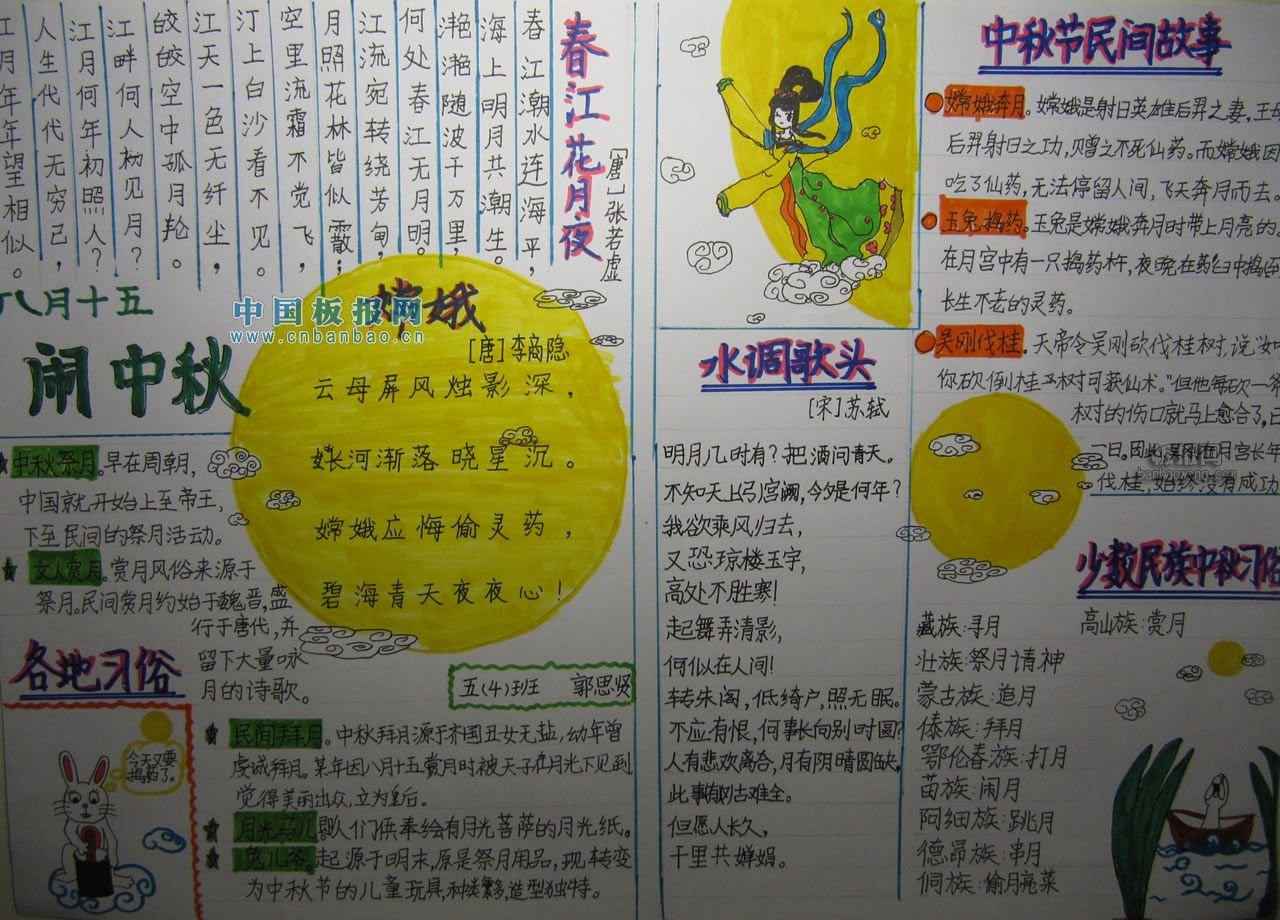 春江花月夜
[唐]张若虚
春江潮水连海平，
海上明月共潮生。
滟滟随波千万里，
何处春江无月明。
江流宛转绕芳甸，
月照花林皆似霰；
空里流霜不觉飞，
汀上白沙看不见。
江天一色无纤尘，
皎皎空中孤月轮。
江畔何人初见月？
江月何年初照人？
人生代代无穷已，
江月年年望相似。
八月十五
闹中秋
中国板报网
www.cnbanbao.cn
嫦娥
[唐]李商隐
云母屏风烛影深，
长河渐落晓星沉。
嫦娥应悔偷灵药，
碧海青天夜夜心！
中秋祭月。早在周朝，
中国就开始上至帝王，
下至民间的祭月活动。
文人赏月。赏月风俗来源于
祭月。民间赏月约始于魏晋，盛
行于唐代，并
留下大量咏
月的诗歌。
各地习俗
五(4)班 郭思贤
今天又要
捣药了。
民间拜月。中秋拜月源于齐国丑女无盐，幼年曾
虔诚拜月。某年因八月十五赏月时被天子在月光下见到
觉得美丽出众，立为皇后。
月光马儿。即人们供奉绘有月光菩萨的月光纸。
兔儿爷。起源于明末，原是祭月用品，现转变
为中秋节的儿童玩具，种类繁多，造型独特。
水调歌头
[宋]苏轼
明月几时有？把酒问青天。
不知天上宫阙，今夕是何年？
我欲乘风归去，
又恐琼楼玉宇，
高处不胜寒！
起舞弄清影，
何似在人间！
转朱阁，低绮户，照无眠。
不应有恨，何事长向别时圆？
人有悲欢离合，月有阴晴圆缺，
此事古难全。
但愿人长久，
千里共婵娟。
中秋节民间故事
嫦娥奔月。嫦娥是射日英雄后羿之妻，王母
后羿射日之功，赠之不死仙药。而嫦娥因
吃了仙药，无法停留人间，飞天奔月而去。
玉兔捣药。玉兔是嫦娥奔月时带上月亮的。
在月宫中有一只捣药杵，夜晚在药臼中捣
长生不老的灵药。
吴刚伐桂。天帝令吴刚砍伐桂树，说"如
你砍倒桂树可获仙术。"但他每砍一斧
树的伤口就马上愈合了，日
一日。因此，吴刚在月宫长年
伐桂，始终没有成功
少数民族中秋习俗
藏族：寻月
高山族：赏月
壮族：祭月请神
蒙古族：追月
傣族：拜月
鄂伦春族：打月
苗族：闹月
阿细族：跳月
德昂族：串月
侗族：偷月亮菜